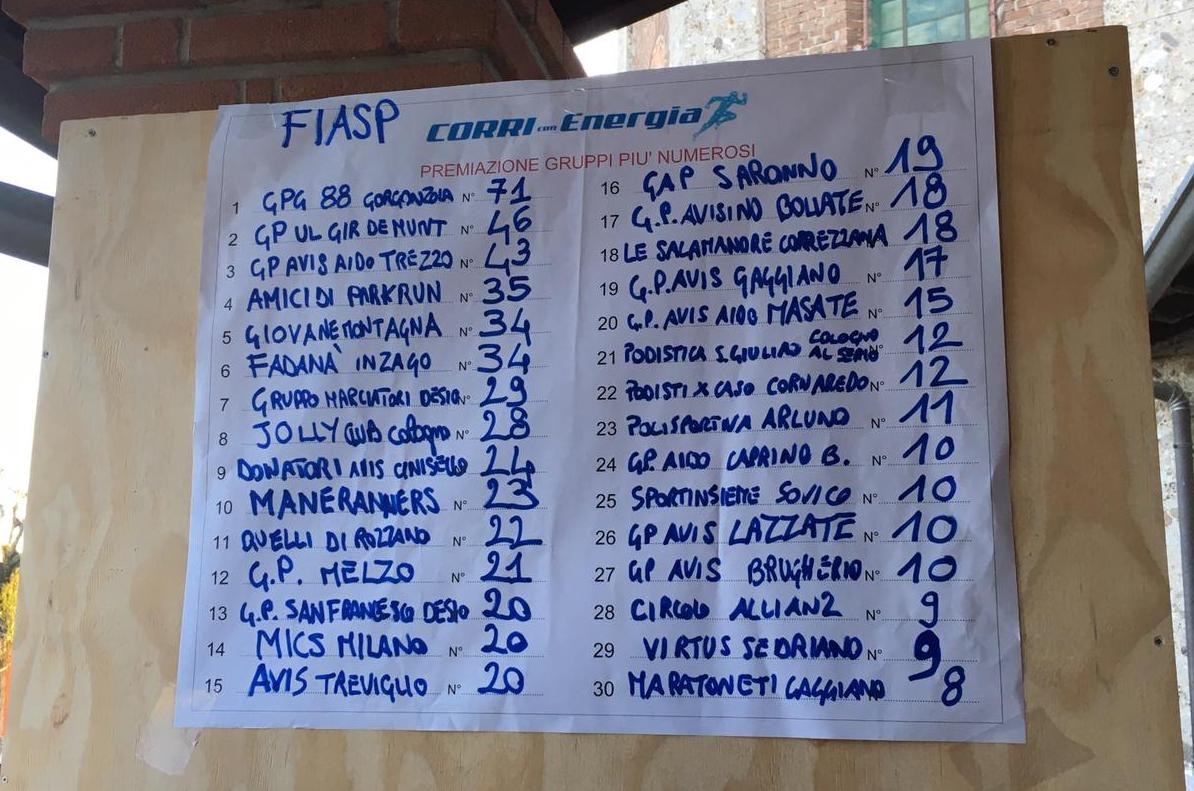 FIASP
CORRI con Energia
PREMIAZIONE GRUPPI PIU' NUMEROSI
1 GPG 88 GORGONZOLA N° 71
2 GP UL GIR DE MUNT N° 46
3 GP AVIS AIDO TREZZO N° 43
4 AMICI DI PARKRUN N° 35
5 GIOVANE MONTAGNA N° 34
6 FADANÀ INZAGO N° 34
7 GRUPPO MARCIATORI DESIO N° 29
8 JOLLY CLUB COLOGNO N° 28
9 DONATORI AVIS CINISELLO 24
10 MANERANNERS N° 23
11 QUELLI DI ROZZANO N° 22
12 G.P. MELZO N° 21
13 G.P. SANFRANCESCO DESIO 20
14 MICS MILANO N° 20
15 AVIS TREVIGLIO N° 20
16 GAP SARONNO N° 19
17 G.P. AVISINO BOLLATE N° 18
18 LE SALAMANDRE CORREZZANA 18
19 G.P. AVIS GAGGIANO N° 17
20 G.P. AVIS AIDO MASATE N° 15
21 PODISTICA S. GIULIAO COLOGNO AL SERIO N° 12
22 PODISTI X CASO CORNAREDO N° 12
23 POLISPORTIVA ARLUNO N° 11
24 GP. AIDO CAPRINO B. N° 10
25 SPORTINSIEME SOVICO N° 10
26 GP AVIS LAZZATE N° 10
27 GP AVIS BRUGHERIO N° 10
28 CIRCOLO ALLIANZ N° 9
29 VIRTUS SEDRIANO N° 9
30 MARATONETI GAGGIANO 8